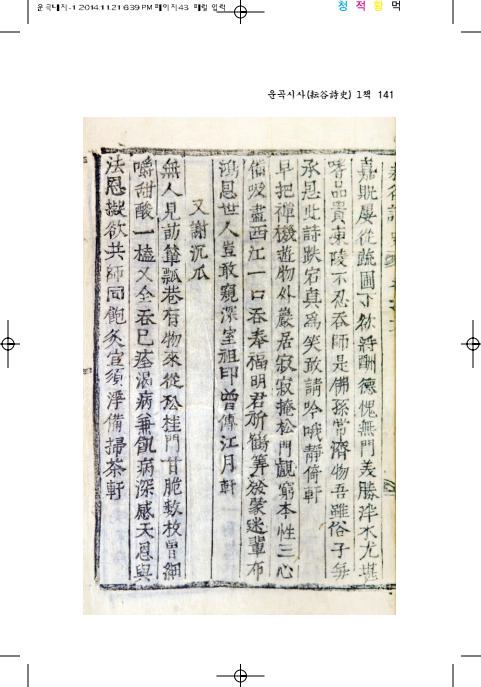 운곡내지-1 2014.11.21 6:39 PM 페이지43
청 적 황 먹
운곡시사(耘谷詩史) 1책 141
嘉貺屢從蔬圃予欲將酬德愧無門美勝萍水尤堪
嗜品貴東陵不忍吞師是佛孫常濟物吾雖俗子每
承恩此詩跌宕真爲笑敢請吟哦靜倚軒
早把禪機遊物外巖居寂寂掩松門觀窮本性三心
備吸盡西江一口吞奉福明君祈鶴筭發蒙迷輩布
鴻恩世人豈敢窺深室祖印曾傳江月軒
又謝沉瓜
無人見訪簞瓢巷有物來從松桂門甘脆數枚曾細
嚼甜酸一榼又全吞已痊渴病兼飢病深感天恩與
法恩擬欲共師同飽灸宣須淨備掃茶軒